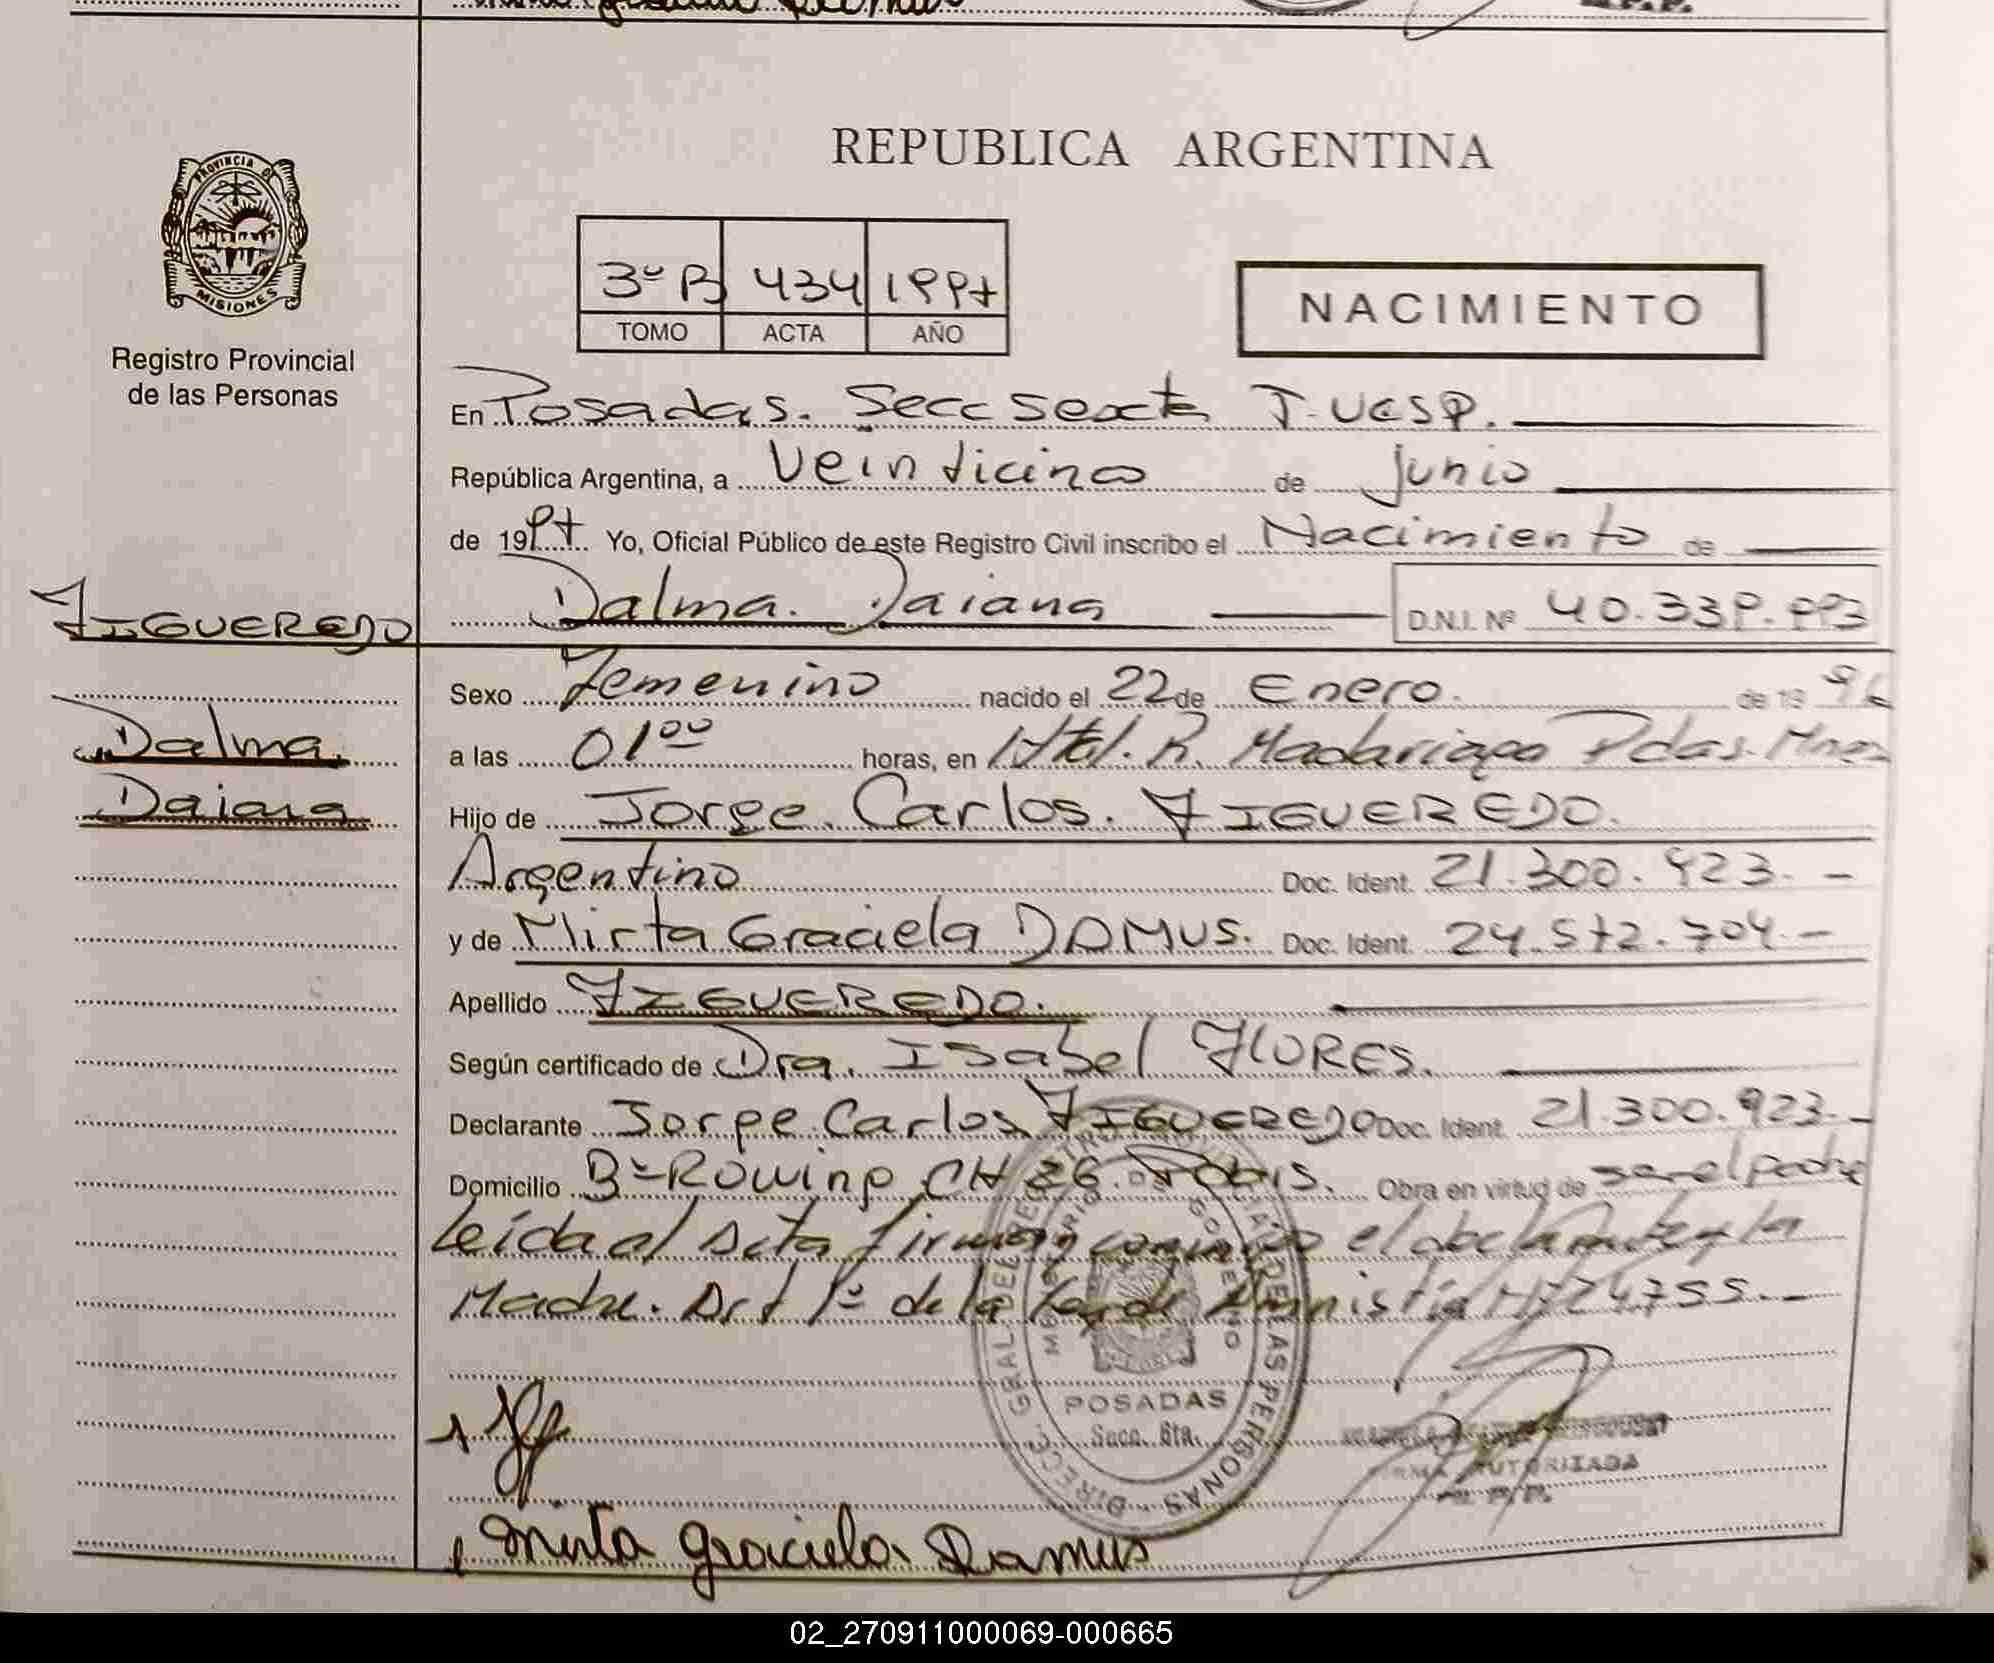 PROVINCIA DE
MISIONES
Registro Provincial
de las Personas
REPUBLICA ARGENTINA
3º B 434 1997
TOMO ACTA AÑO
NACIMIENTO
En Posadas. Secc Sexta
República Argentina, a Veinticinco de Junio
de 1997 Yo, Oficial Público de este Registro Civil inscribo el Nacimiento de
FIGUEREDO
Dalma. Daiana D.N.I. Nº 40.339.993
Dalma
Daiana
Sexo Femenino nacido el 22 de Enero. de 19 96
a las 01 00 horas, en Htal. R. Madariaga Pdas. Mnes
Hijo de Jorge Carlos. FIGUEREDO.
Argentino Doc. Ident. 21.300.923. -
y de Mirta Graciela DAMUS. Doc. Ident. 24.572.704. -
Apellido FIGUEREDO.
Según certificado de Dra. Isabel FLORES.
Declarante Jorge Carlos FIGUEREDO Doc. Ident. 21.300.923. -
Domicilio Bº Rowing CH 26. Obra en virtud de ser el padre
Leída el Acta firman conmigo el declarante y la
Madre. Art 1º de la Ley de Amnistía Nº 24755. -
DIRECC. GRAL. DEL REGISTRO DE LAS PERSONAS
MINISTERIO DE GOBIERNO
POSADAS
Secc. 6ta.
FIRMA AUTORIZADA
R. P. P.
Mirta Graciela Damus
02_270911000069-000665